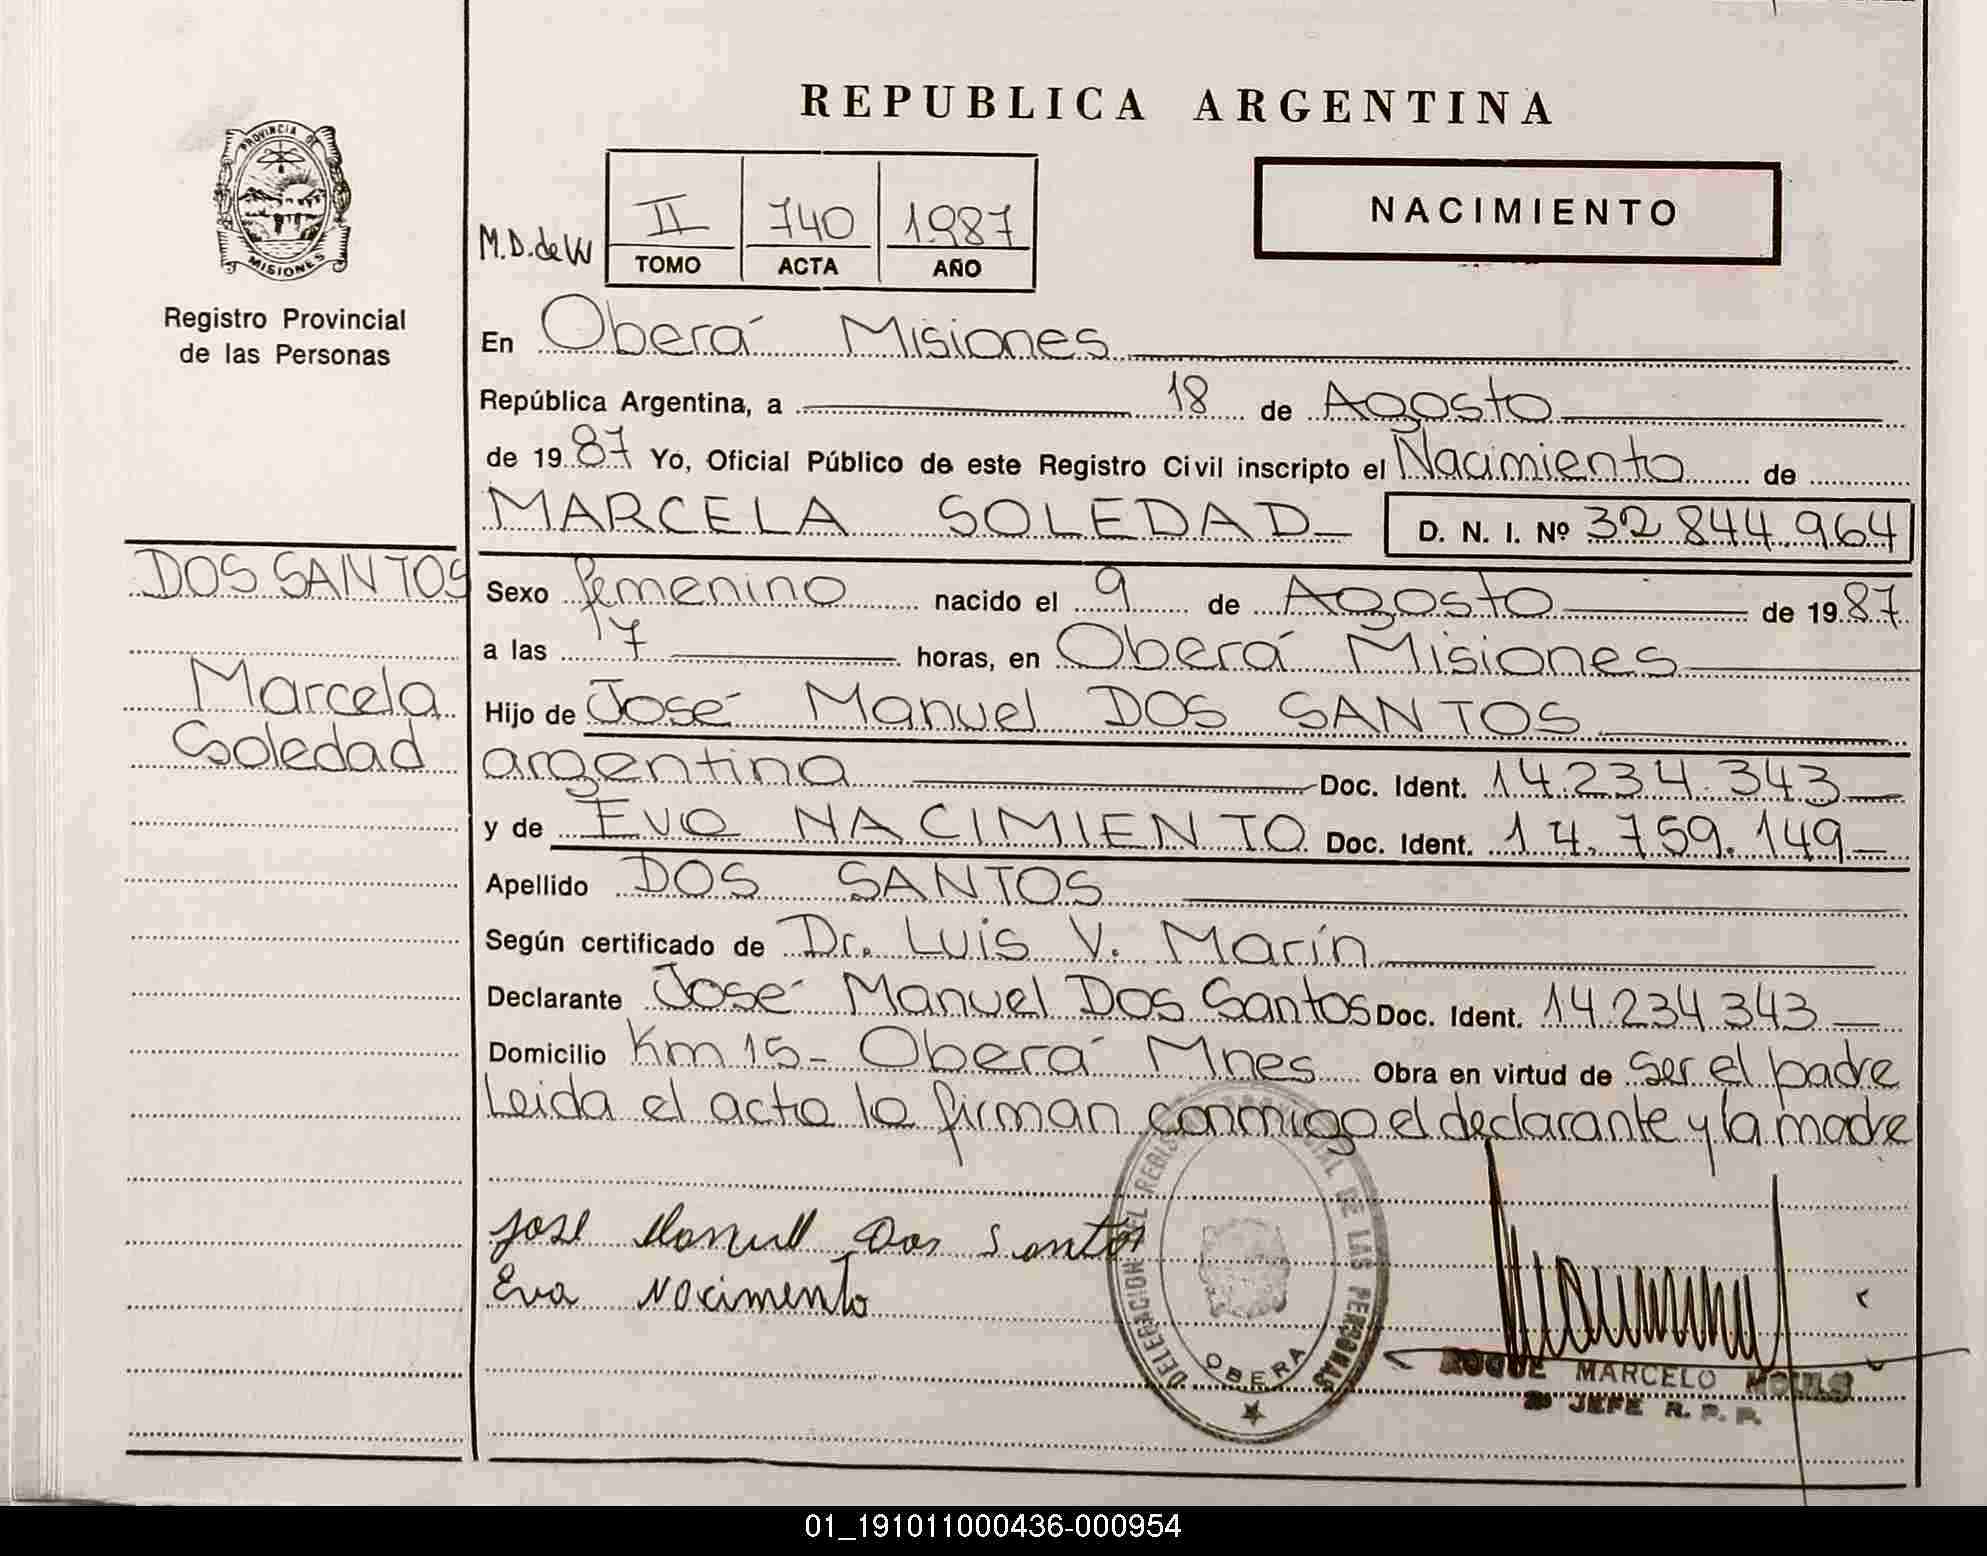 REPUBLICA ARGENTINA
PROVINCIA DE
MISIONES
Registro Provincial
de las Personas
M.D. de W
II 740 1987
TOMO ACTA AÑO
NACIMIENTO
En Oberá Misiones
República Argentina, a 18 de Agosto
de 1987 Yo, Oficial Público de este Registro Civil inscripto el Nacimiento de
MARCELA SOLEDAD D. N. I. Nº 32 844.964
DOS SANTOS
Marcela
Soledad
Sexo femenino nacido el 9 de Agosto de 1987
a las 7 horas, en Oberá Misiones
Hijo de José Manuel DOS SANTOS
argentina Doc. Ident. 14.234.343
y de Eva NACIMIENTO Doc. Ident. 14.759.149
Apellido DOS SANTOS
Según certificado de Dr. Luis V. Marín
Declarante José Manuel Dos Santos Doc. Ident. 14.234.343
Domicilio Km 15 - Oberá Mnes Obra en virtud de ser el padre
Leida el acta la firman conmigo el declarante y la madre
Jose Manuel Dos Santos
Eva Nacimento
DELEGACION DEL REGISTRO PROVINCIAL DE LAS PERSONAS
OBERA
ROQUE MARCELO
2º JEFE R. P. P.
01_191011000436-000954